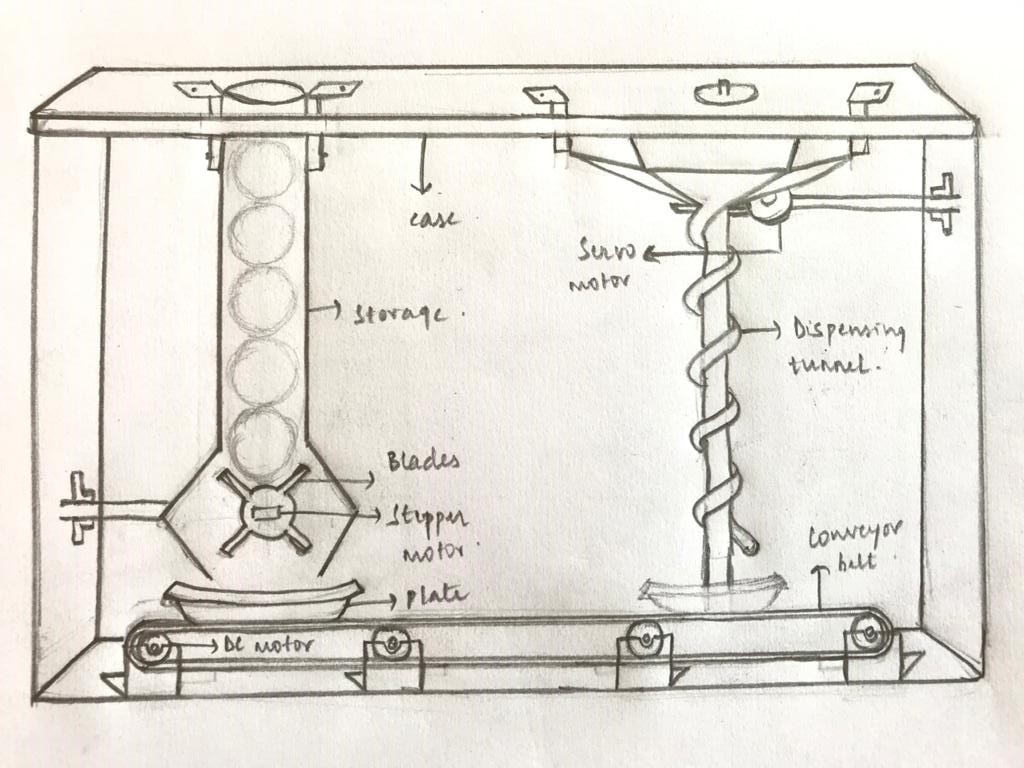 case
Servo
motor
Storage.
Dispensing
tunnel.
Blades
Stepper
motor.
Conveyor
belt
plate
DC motor